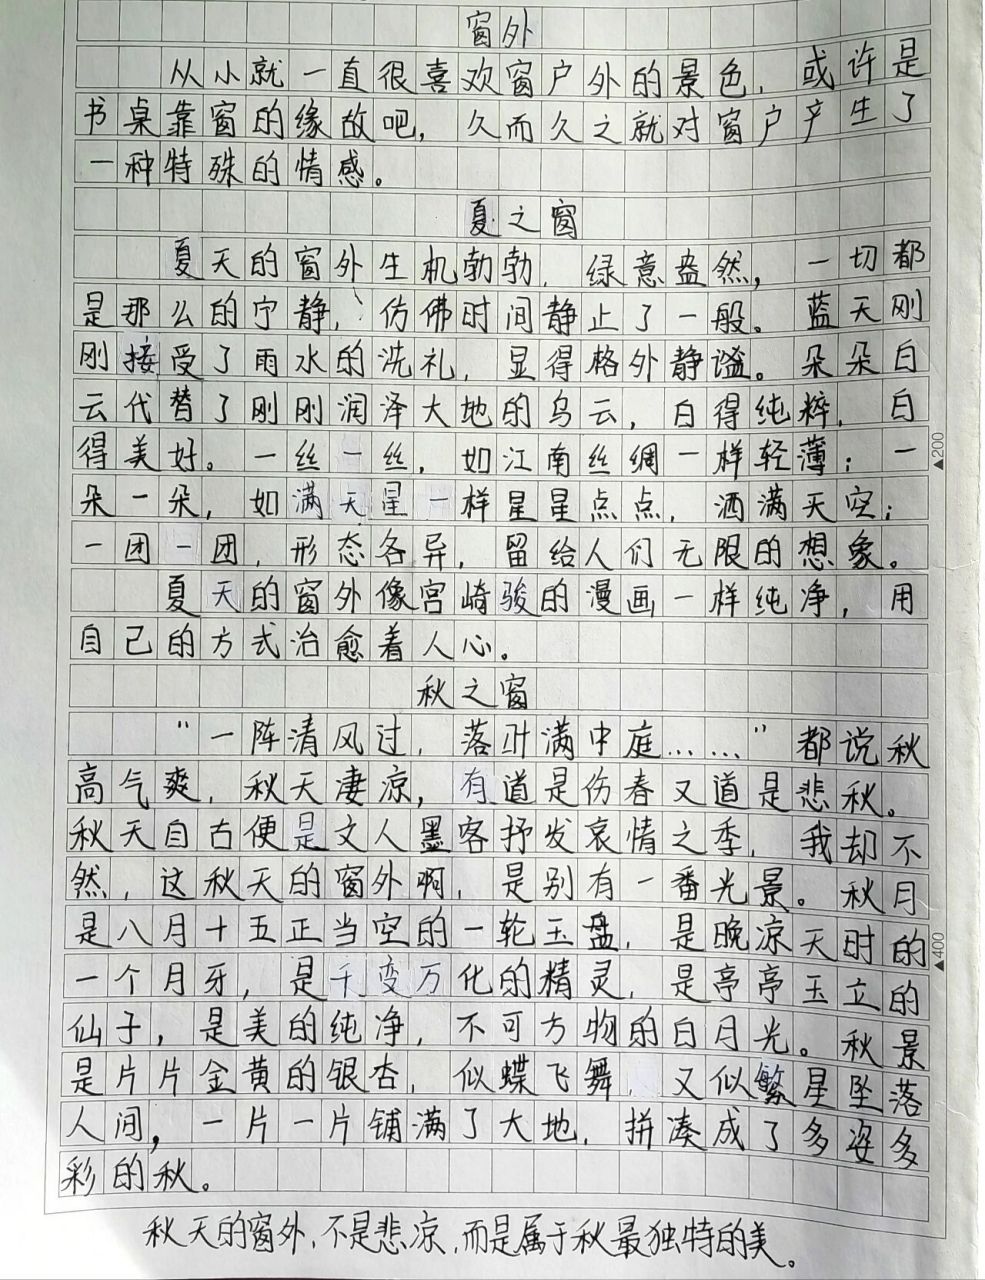 窗外
从小就一直很喜欢窗户外的景色，或许是
书桌靠窗的缘故吧，久而久之就对窗户产生了
一种特殊的情感。
夏之窗
夏天的窗外生机勃勃，绿意盎然，一切都
是那么的宁静，仿佛时间静止了一般。蓝天刚
刚接受了雨水的洗礼，显得格外静谧。朵朵白
云代替了刚刚润泽大地的乌云，白得纯粹，白
得美好。一丝一丝，如江南丝绸一样轻薄；一
▲200
朵一朵，如满天星一样星星点点，洒满天空；
一团一团，形态各异，留给人们无限的想象。
夏天的窗外像宫崎骏的漫画一样纯净，用
自己的方式治愈着人心。
秋之窗
“一阵清风过，落叶满中庭……”都说秋
高气爽，秋天凄凉，有道是伤春又道是悲秋。
秋天自古便是文人墨客抒发哀情之季，我却不
然，这秋天的窗外啊，是别有一番光景。秋月
是八月十五正当空的一轮玉盘，是晚凉天时的
▲400
一个月牙，是千变万化的精灵，是亭亭玉立的
仙子，是美的纯净，不可方物的白月光。秋景
是片片金黄的银杏，似蝶飞舞，又似繁星坠落
人间，一片一片铺满了大地，拼凑成了多姿多
彩的秋。
秋天的窗外，不是悲凉，而是属于秋最独特的美。